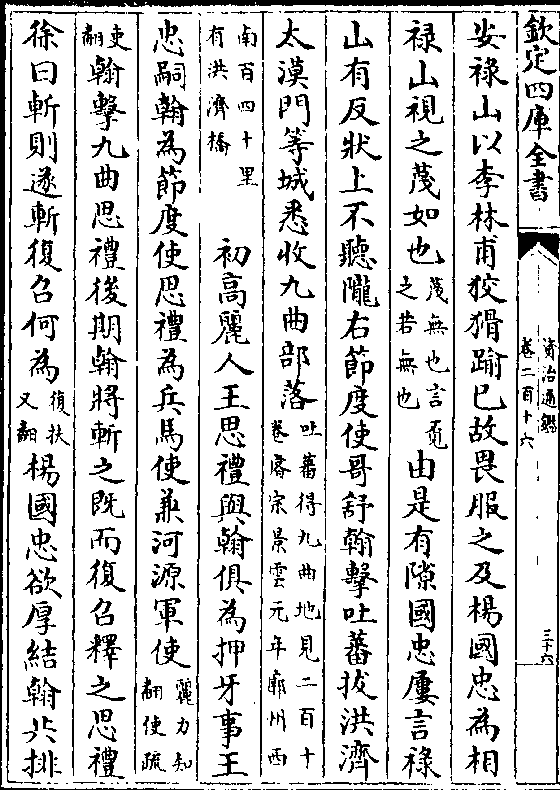 欽定四庫全書
資治通鑑
卷二百十六
三十六
安祿山以李林甫狡猾踰已故畏服之及楊國忠為相
祿山視之蔑如也蔑無也言覔之若無也由是有隙國忠屢言祿
山有反狀上不聽隴右節度使哥舒翰擊吐蕃拔洪濟
太漠門等城悉收九曲部落吐蕃得九曲地見二百十卷睿宗景雲元年廓州西
南百四十里有洪濟橋初高麗人王思禮與翰俱為押牙事王
忠嗣翰為節度使思禮為兵馬使兼河源軍使麗力知翻使疏
吏翻翰擊九曲思禮後期翰將斬之既而復召釋之思禮
徐曰斬則遂斬復召何為復扶又翻楊國忠欲厚結翰共排